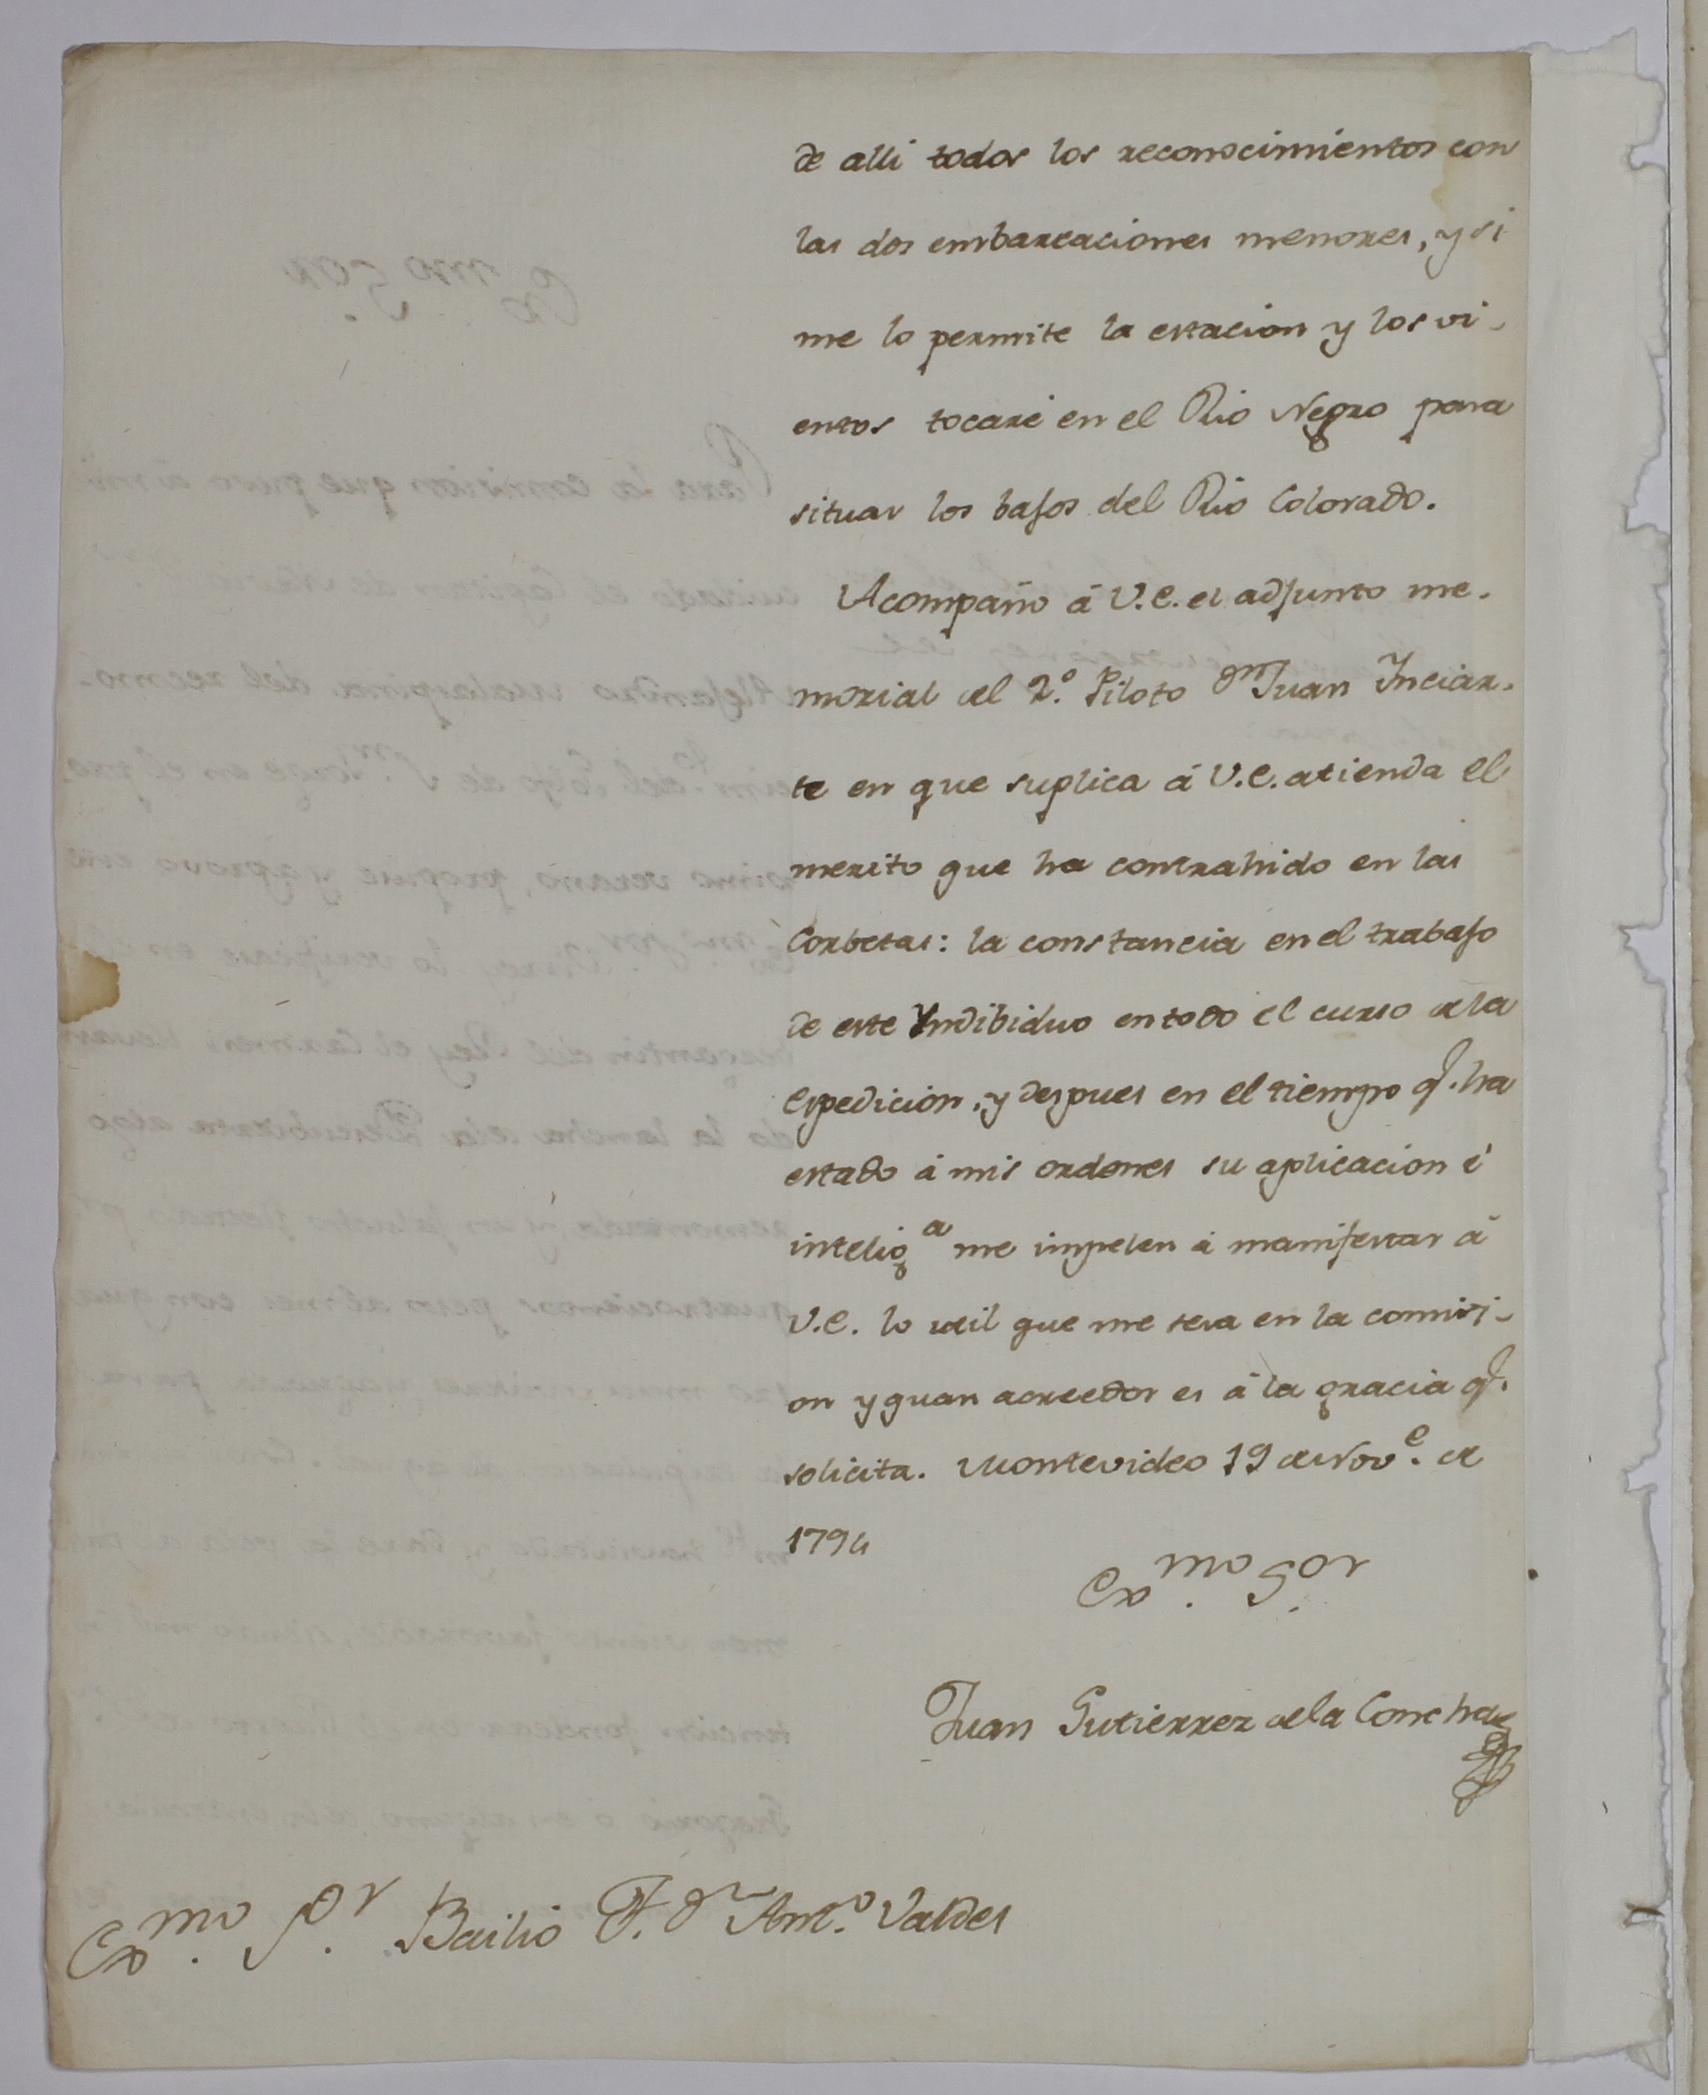 de alli todos los reconocimientos con
las dos embarcaciones menores, y si
me lo permite la estacion y los vi-
entos tocaré en el Rio Negro para
situar los bajos del Rio Colorado.
Acompaño á V.E. el adjunto me-
morial del 2.º Piloto Dn Juan Inciar-
te en que suplica á V.E. atienda el
merito que ha contrahido en las
Corbetas: la constancia en el trabajo
de este Yndibiduo en todo el curso de la
Espedicion, y despues en el tiempo q.e ha
estado á mis ordenes su aplicacion é
intelig.a me impelen á manifestar á
V.E. lo util que me sera en la comisi-
on y quan acreedor es á la gracia q.e
solicita. Montevideo 19 de Nov.e de
1794
Ex.mo S.or
Juan Gutierrez de la Concha
Ex.mo S.or Bailio F. Dn Ant.o Valdes